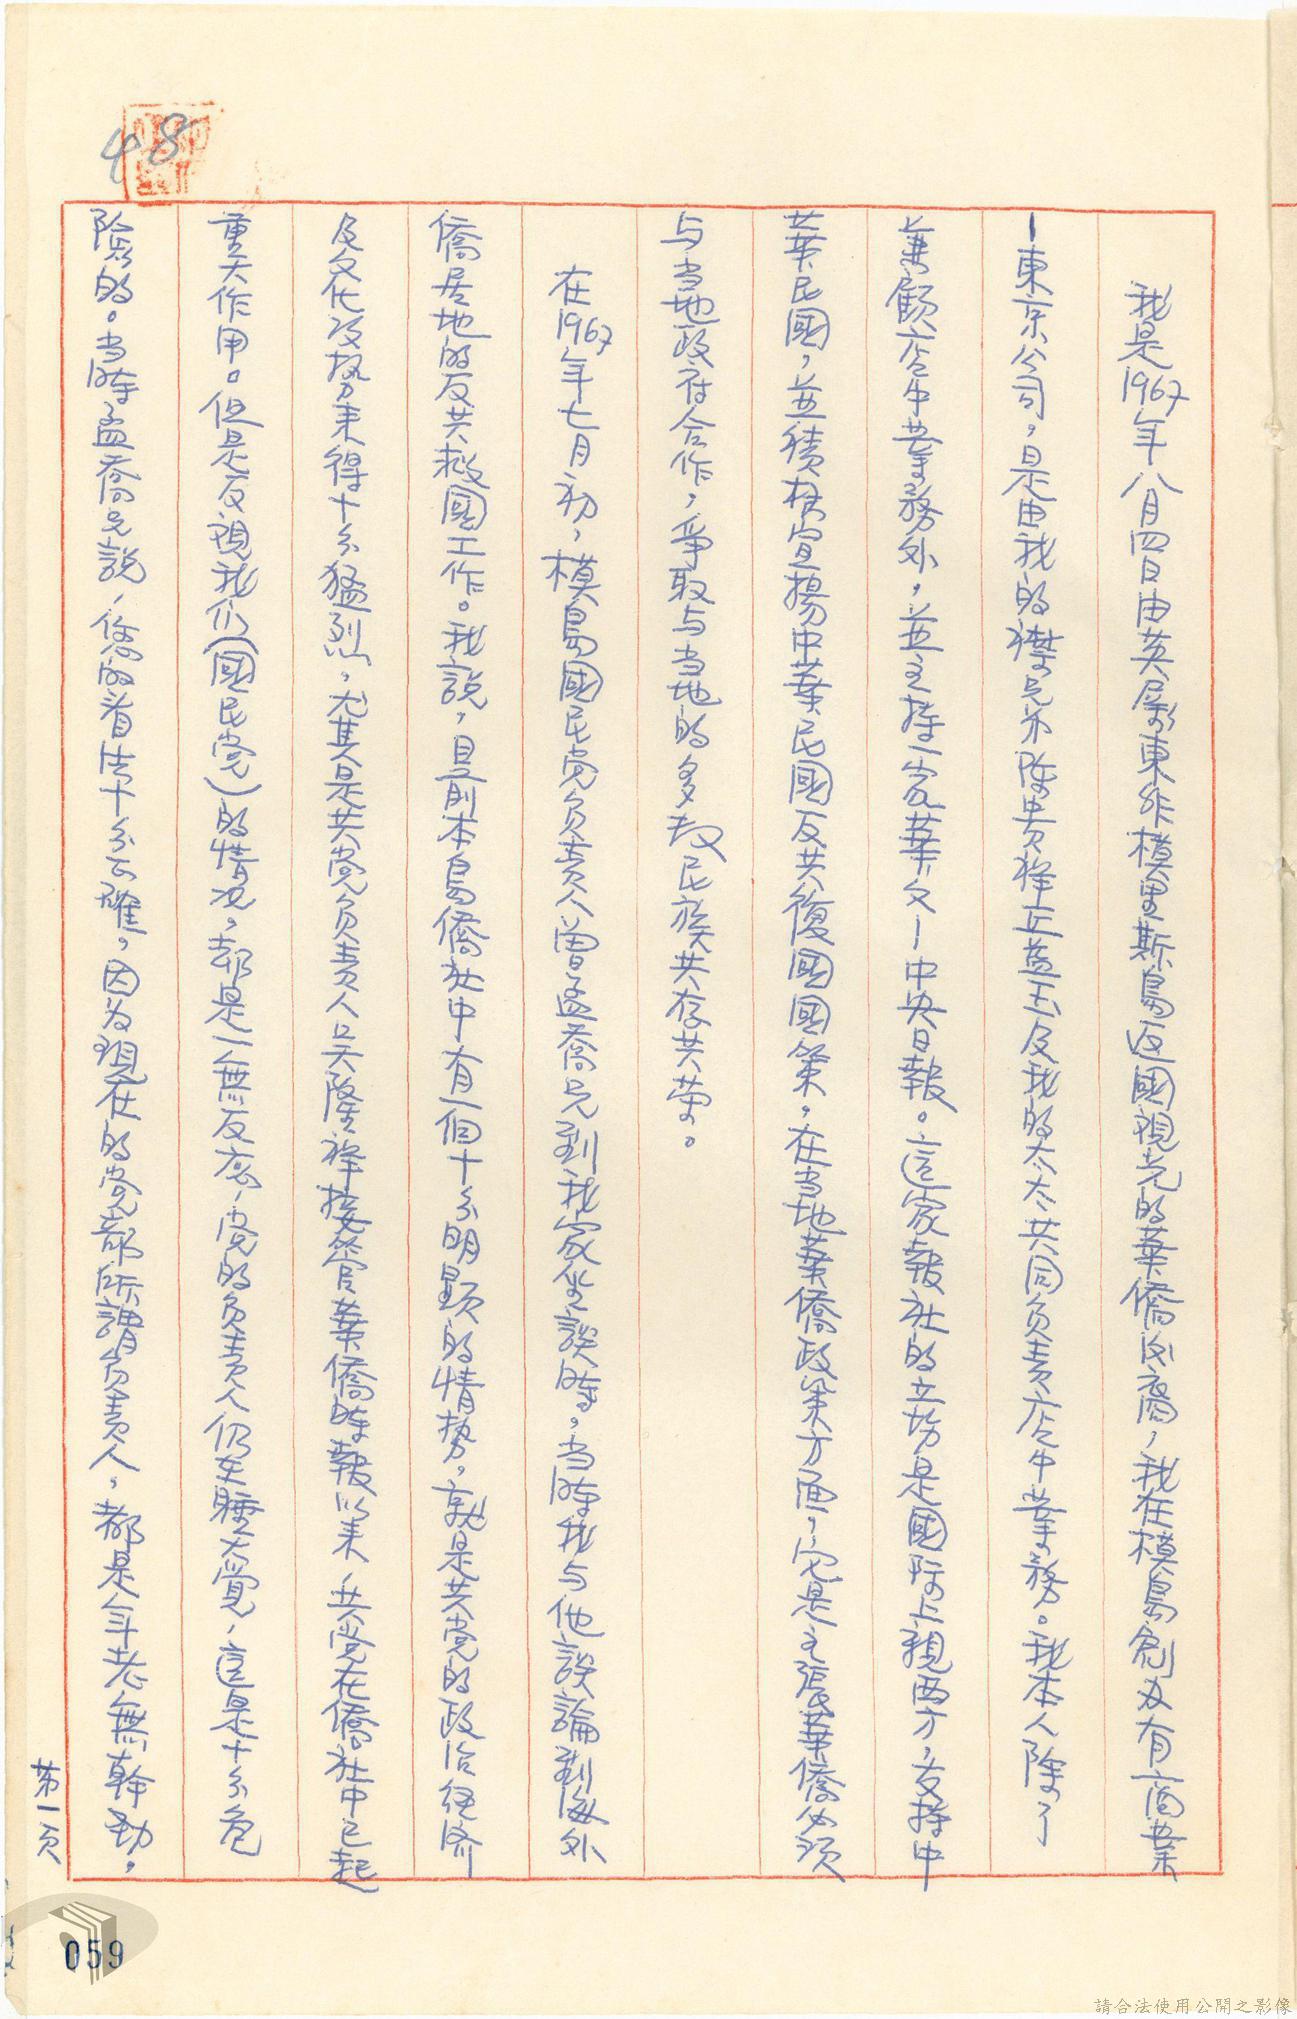 48
我是1967年八月四日由英屬東非模里斯島返國觀光的華僑丘裔，我在模島創办有商業
—東京公司，是由我的襟兄弟陈贵祥丘蓝玉及我的太太共同负责店中業務。我本人除了
兼顧店中業務外，並主持一家華文—中央日報。這家報社的立场是國际上親西方，支持中
華民國，並積極宣揚中華民國反共復國國策。在当地華僑政策方面，它是主張華僑必须
与当地政府合作，爭取与当地的多数民族共存共荣。
在1967年七月初，模島國民党负责人曾孟喬兄到我家坐談時。当時我与他談論到海外
僑居地的反共救國工作。我說，目前本島僑社中有一個十分明顯的情势。就是共党的政治经济
及文化攻势来得十分猛烈，尤其是共党负责人吴隆祥接管華僑時報以来，共党在僑社中已起
重大作用。但是反視我们（國民党）的情况，却是一無反应，党的负责人仍在睡大覺，這是十分危
險的。当時孟喬兄說，您的看法十分正確，因为現在的党部所謂负责人，都是年老無幹劲。
第一页
059
請合法使用公開之影像